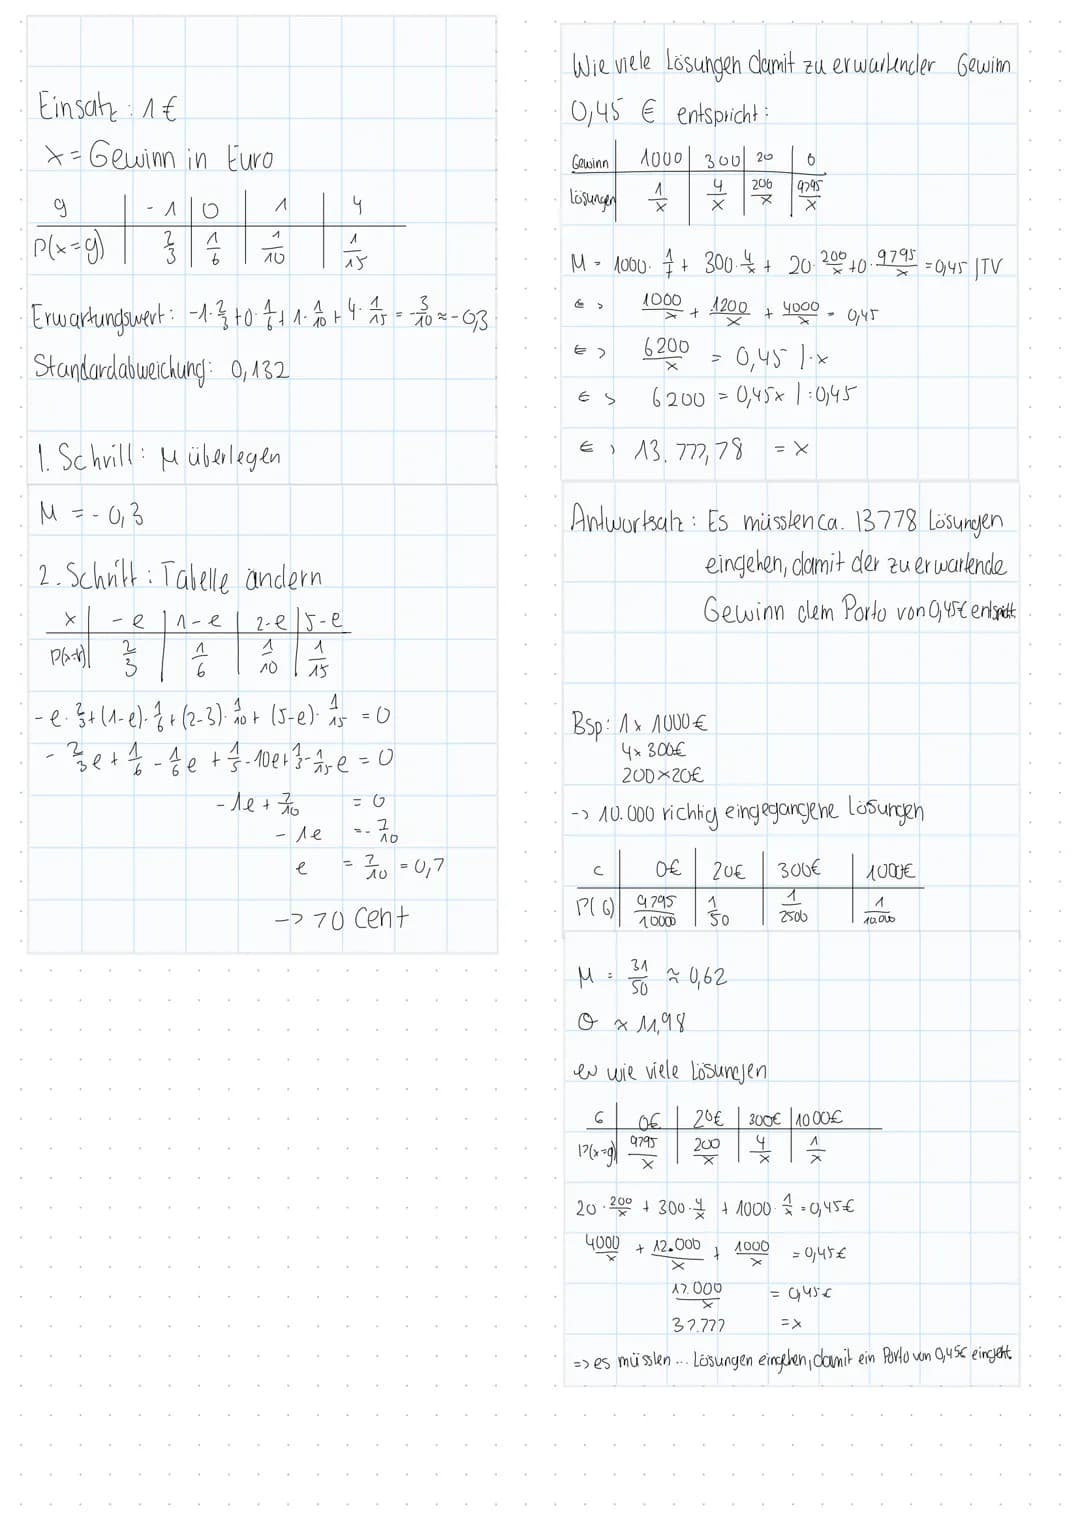 Einsatz: 1€
x = Gewinn in Euro
g | -1 | 0 | 1 | 4
P(x=g) | 2/3 | 1/6 | 1/10 | 1/15
Erwartungswert: -1·2/3+0·1/6+1·1/10+4·1/15 = -3/10 ≈ -0,3
Standardabweichung: 0,132
1. Schritt: μ überlegen
M = -0,3
2. Schritt: Tabelle ändern
x | -e | 1-e | 2-e | 5-e
2/3 | 1/6 | 1/10 | 1/15
-e·2/3+(1-e)·1/6+(2-3)·1/10+(5-e)·1/15 = 0
-2/3e+1/6-1/6e+1/5-10e+1/3-1/15e = 0
-1e+7/10 = 0
-1e = -7/10
e = 7/10 = 0,7
-> 70 Cent
Wie viele Lösungen damit zu erwartender Gewinn
0,45 € entspricht:
Gewinn | 1000 | 300 | 20 | 0
Lösungen | 1/x | 4/x | 200/x | 9795/x
M = 1000·1/x + 300·4/x + 20·200/x +0·9795/x = 0,45 |TV
1000/x + 1200/x + 4000/x = 0,45
6200/x = 0,45 |·x
6200 = 0,45x |:0,45
13.777,78 = x
Antwortsatz: Es müssten ca. 13778 Lösungen
eingehen, damit der zu erwartende
Gewinn dem Porto von 0,45€ entspricht
Bsp: 1x 1000€
4x 300€
200x20€
-> 10.000 richtig eingegangene Lösungen
c | 0€ | 20€ | 300€ | 1000€
P(G) | 9795/10000 | 1/50 | 1/2500 | 1/10.000
M = 31/50 ≈ 0,62
σ ≈ 11,98
wie viele Lösungen
G | 0€ | 20€ | 300€ | 1000€
P(x=g) | 9795/x | 200/x | 4/x | 1/x
20·200/x + 300·4/x + 1000·1/x = 0,45€
4000/x + 12.000/x + 1000/x = 0,45€
17.000/x = 0,45€
37.777 = x
=> es müssten ... Lösungen eingehen, damit ein Porto von 0,45€ eingeht.